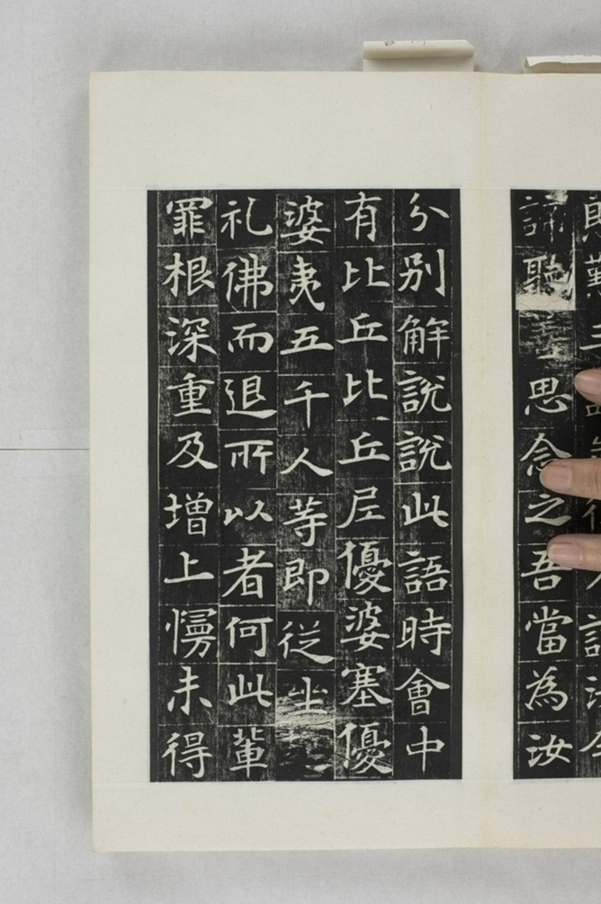 諦聽思念之吾當為汝
分別解說說此語時會中
有比丘比丘尼優婆塞優
婆夷五千人等即從坐
礼佛而退所以者何此輩
罪根深重及增上慢未得